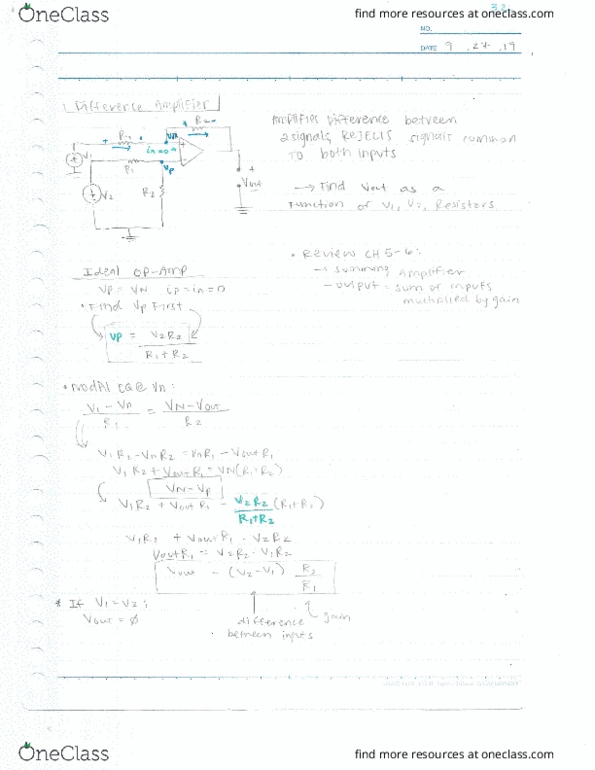 OneClass
find more resources at oneclass.com
NO.
DATE 9 . 27 . 19
Difference Amplifier
Amplifies Difference between
2 signals, REJECTS signals common
TO both inputs
→ Find Vout as a
Function of V1, V2, Resistors
R1
R2
VN
in=0A
V1
R1
Vp
V2
R2
+
Vout
-
• Review CH 5-6:
→ summing Amplifier
- output = sum of inputs
multiplied by gain
Ideal OP-Amp
VP = VN ip=in=0
• Find Vp First
VP = V2R2
R1+R2
• Nodal EQ @ Vn:
V1 - Vn = VN - Vout
R1 R2
V1R2 - VnR2 = VnR1 - VoutR1
V1R2 + VoutR1 = VN(R1+R2)
VN = VP
V1R2 + VoutR1 = V2R2 (R1+R2)
R1+R2
V1R2 + VoutR1 = V2R2
VoutR1 = V2R2 - V1R2
Vout = (V2-V1) R2
R1
* If V1=V2:
Vout = Ø
difference
between inputs
gain
OneClass
find more resources at oneclass.com